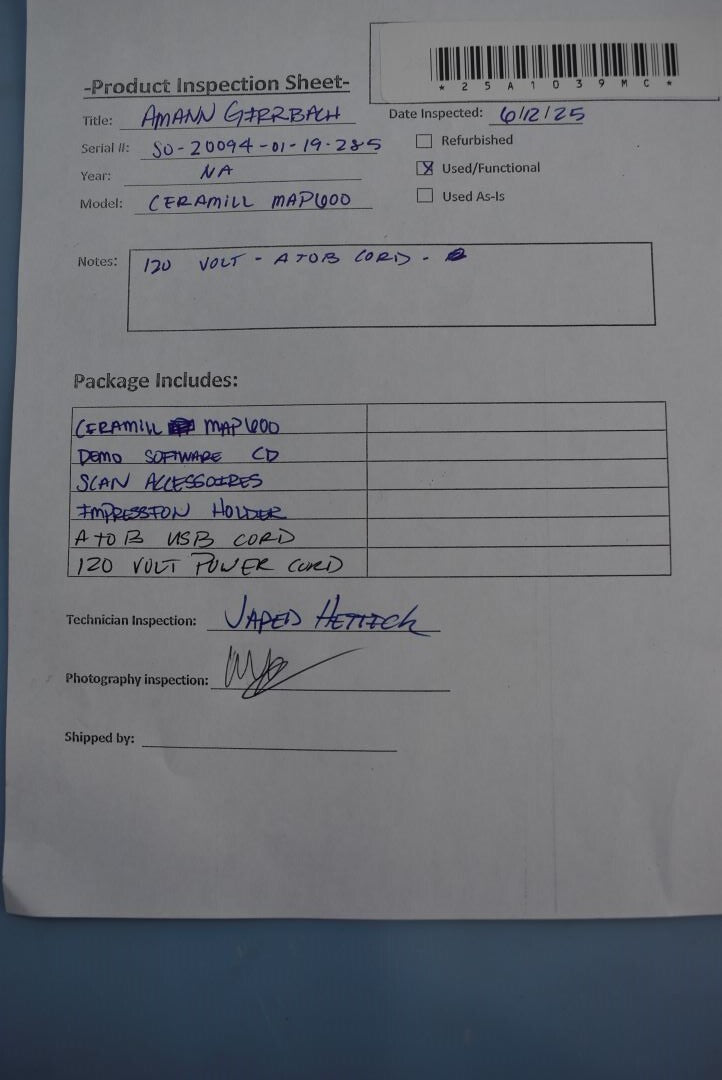 * 2 5 A 1 0 3 9 M C *
-Product Inspection Sheet-
Title: AMANN GIRRBACH
Date Inspected: 6/12/25
Serial #: SO-20094-01-19-285
Refurbished
Year: NA
Used/Functional
Model: CERAMILL MAP600
Used As-Is
Notes: 120 VOLT - A TO B CORD -
Package Includes:
CERAMILL MAP600
DEMO SOFTWARE CD
SCAN ACCESSOIRES
IMPRESSION HOLDER
A TO B USB CORD
120 VOLT POWER CORD
Technician Inspection: JARED
Photography inspection:
Shipped by: